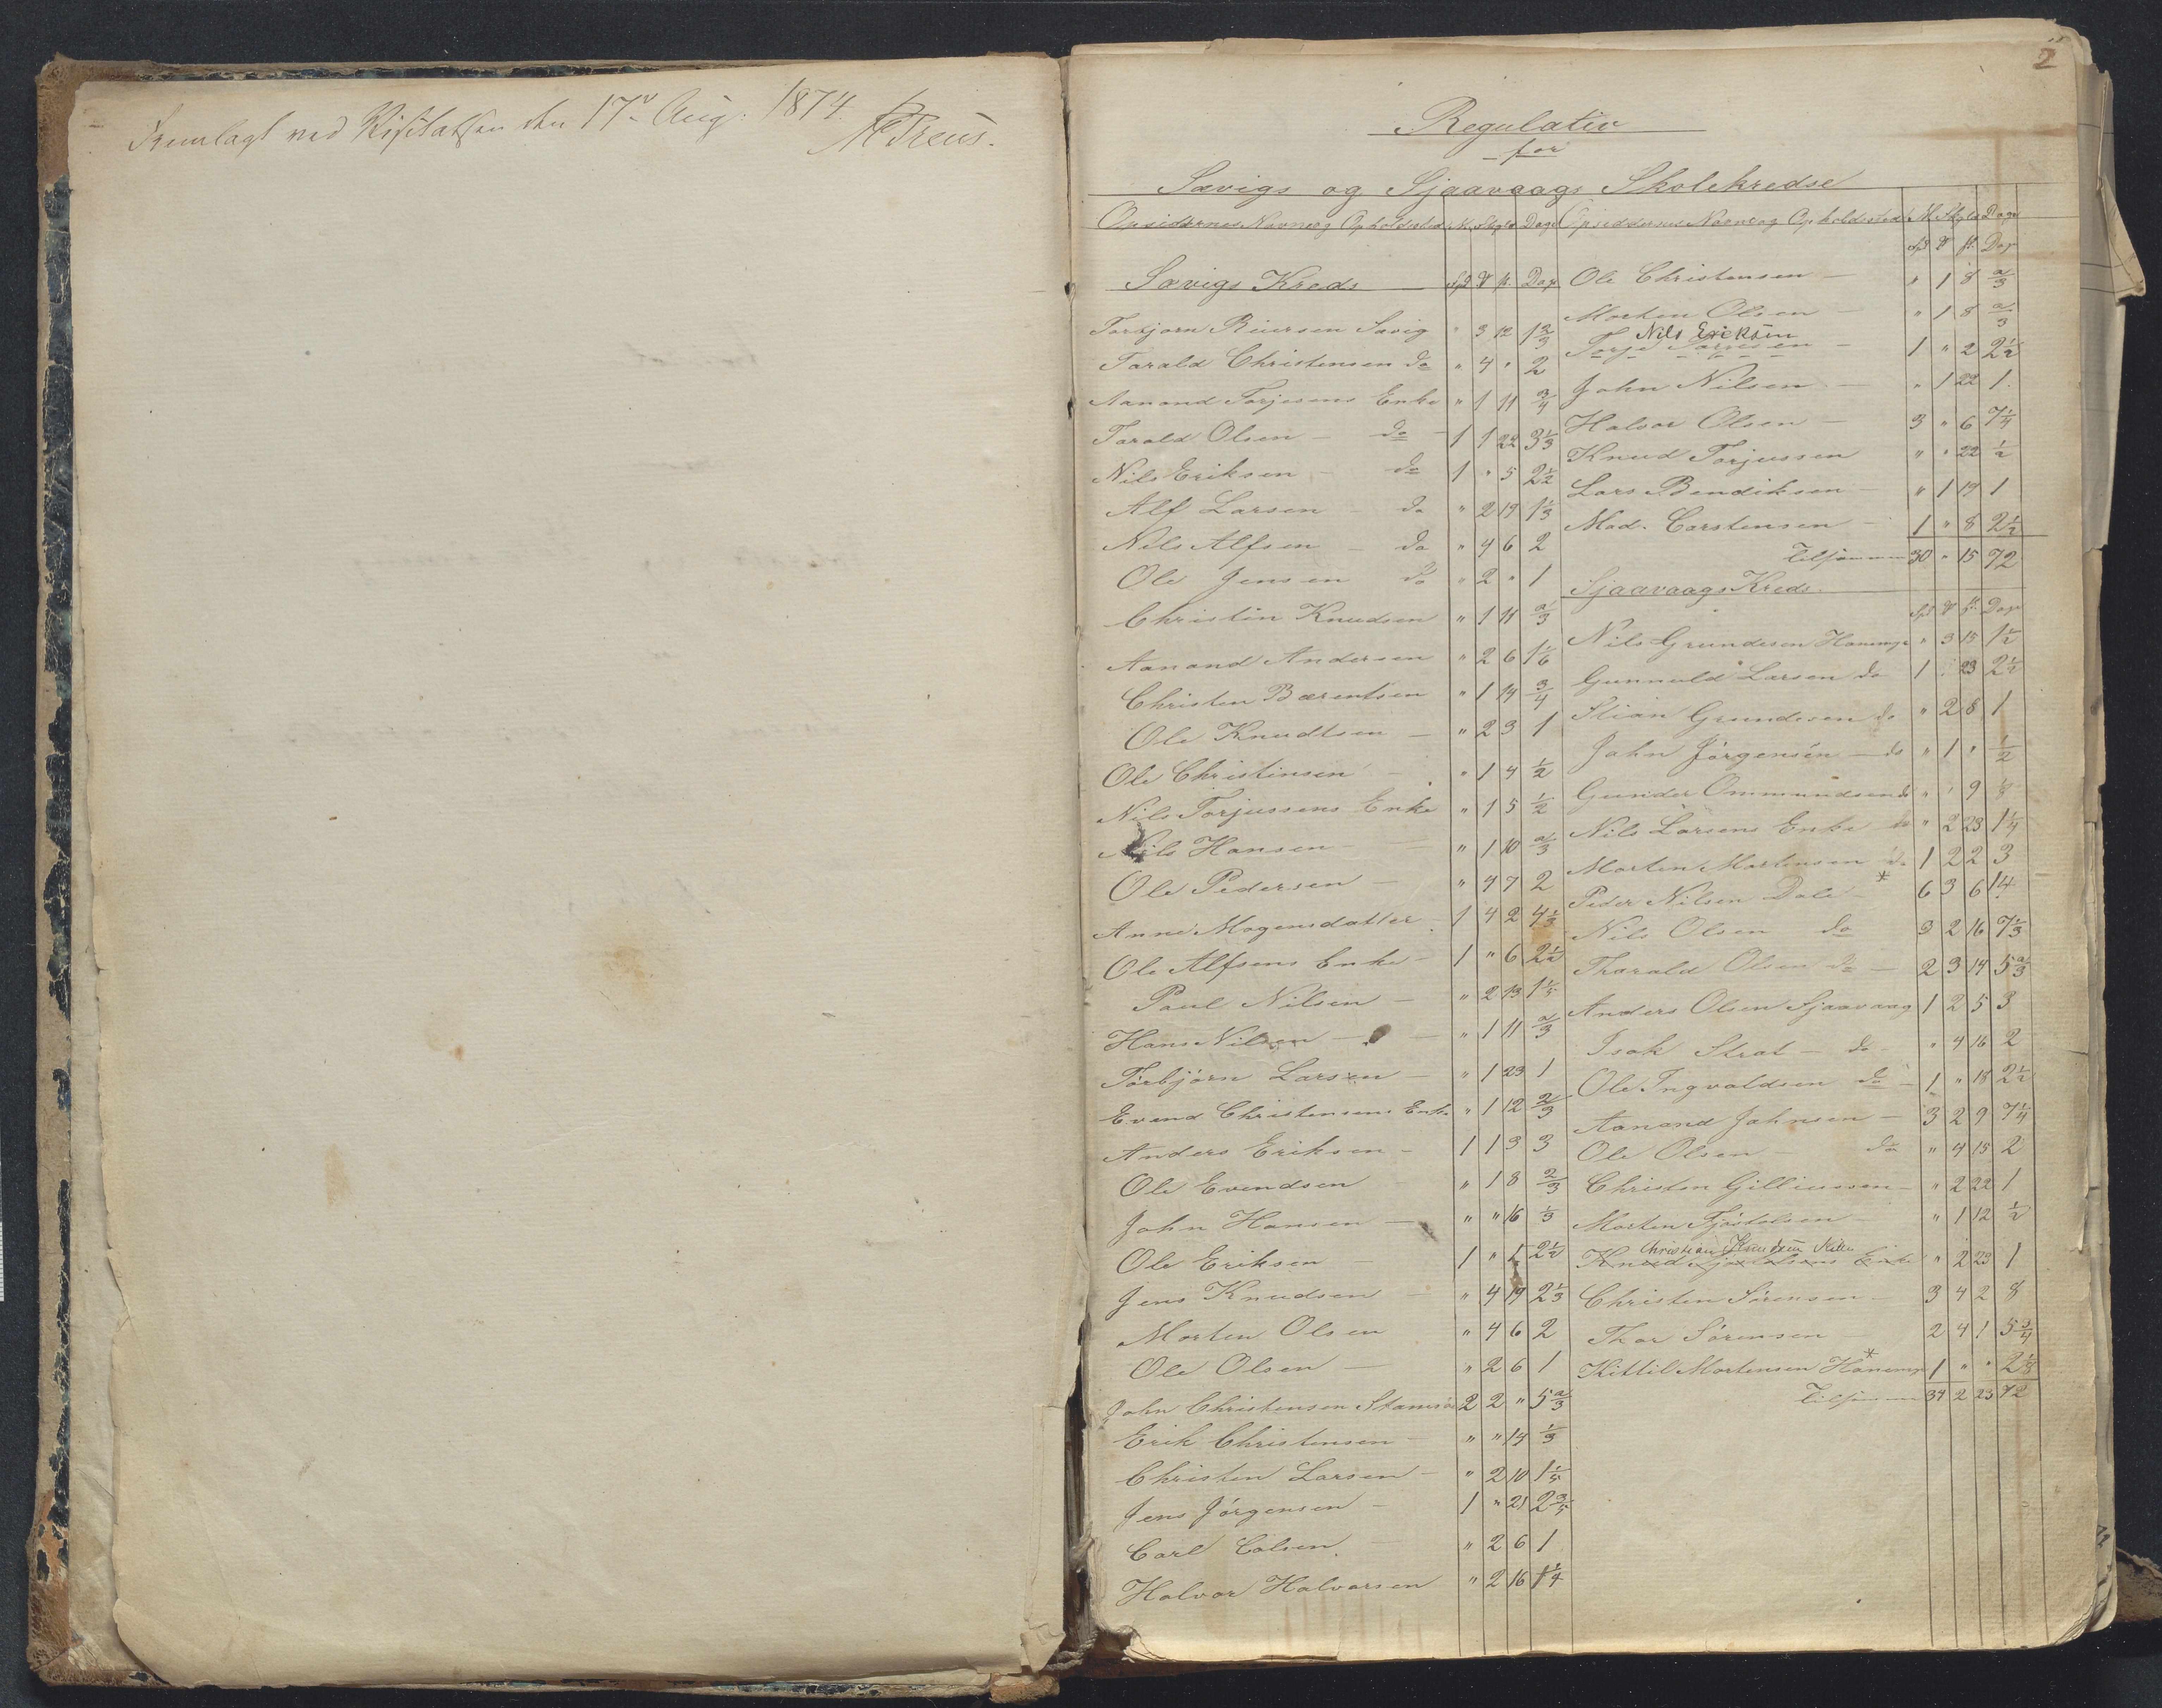 Fremlagt ved Visitatsen den 17de Aug. 1874.
2
Regulativ
for
Sævigs og Sjaavaags Skolekredse
Opsiddernes Navne og Opholdssted M. Skyld Dage
Sævigs Kreds Spd. Ort ß. Dage
Torbjørn Reiersen Sævig " 3 12 1 2/3
Tarald Christensen do " 4 " 2
Aanand Torjesens Enke " 1 11 3/4
Tarald Olsen - do - 1 1 22 3 1/3
Nils Eriksen - do 1 " 5 2 1/2
Alf Larsen - do " 2 19 1 1/3
Nils Alfsen - do " 4 6 2
Ole Jensen do " 2 " 1
Christen Knudsen " 1 11 2/3
Aanand Andersen " 2 6 1 1/6
Christen Bærentsen " 1 14 3/4
Ole Knudtsen - " 2 3 1
Ole Christensen - " 1 4 1/2
Nils Torjussens Enke " 1 5 1/2
Nils Hansen - " 1 10 2/3
Ole Pedersen - " 4 7 2
Anne Mogensdatter - 1 4 2 4 1/3
Ole Alfsens Enke - 1 " 6 2 1/2
Paul Nilsen - " 2 13 1 1/5
Hans Nilsen - " 1 11 2/3
Torbjørn Larsen - " 1 23 1
Evend Christensens Enke " 1 12 2/3
Anders Eriksen - 1 1 3 3
Ole Evendsen " 1 8 2/3
John Hansen - " " 16 1/3
Ole Eriksen - 1 " 1 2 1/2
Jens Knudsen - " 4 19 2 1/3
Morten Olsen " 4 6 2
Ole Olsen - " 2 6 1
John Christensen 2 2 " 5 2/3
Erik Christensen - " " 14 1/3
Christen Larsen - " 2 10 1 1/5
Jens Jørgensen - 1 " 21 2 3/5
Carl Colsen - " 2 6 1
Halvor Halvorsen " 2 16 1 1/4
Opsiddernes Navne og Opholdssted M. Skyld Dage
Spd Ort ß. Dage
Ole Christensen - " 1 8 2/3
Morten Olsen - " 1 8 2/3
Nils Eriksen
Torje - 1 " 2 2 1/2
John Nilsen - " 1 22 1
Halvor Olsen - 3 " 6 7 1/4
Knud Torjussen " " 22 1/2
Lars Bendiksen - " 1 19 1
Mad. Carstensen - 1 " 8 2 1/2
Tilsammen 30 " 15 72
Sjaavaags Kreds.
Spd Ort ß. Dage
Nils Grundesen Hananger " 3 15 1 1/2
Gunnuld Larsen do 1 " 23 2 1/2
Stian Grundesen do " 2 8 1
John Jørgensen - do " 1 " 1/2
Gunder Ommundsen do " " 9
Nils Larsens Enke do " 2 23 1 1/4
Morten Mortensen do 1 2 2 3
Peder Nilsen Dale - * 6 3 6 14
Nils Olsen do 3 2 16 7 1/3
Tharald Olsen do - 2 3 14 5 2/3
Anders Olsen Sjaavaag 1 2 5 3
Isak Strat - do - " 4 16 2
Ole Ingvaldsen do - 1 " 18 2 1/2
Aanand Johnsen - 3 2 9 7 1/4
Ole Olsen - do " 4 15 2
Christen Gilliussen - " 2 22 1
Morten Fjøstolsen - " 1 12 1/2
Christian Knudsen
Knud Fjøstolsens Enke " 2 23 1
Christen Sørensen - 3 4 2 8
Thor Sørensen - 2 4 1 5 3/4
Kittil Mortensen Hananger * 1 " " 2 1/3
Tilsammen 34 2 23 72